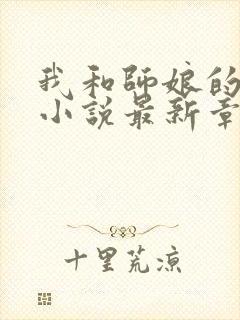 我和師娘的
小說最新章
十里荒涼